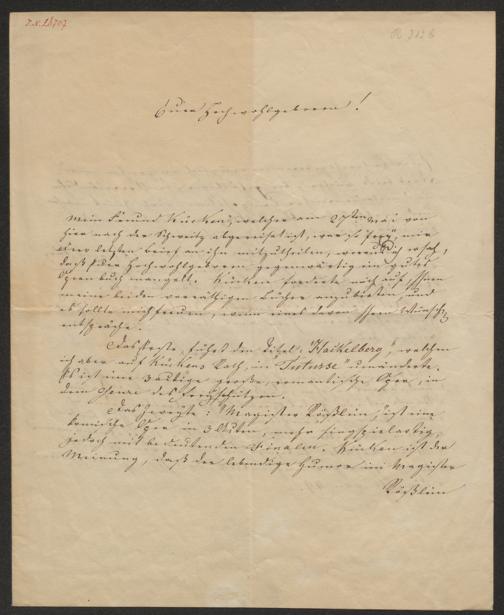 J.N. 28707
Euer Hochwohlgeboren!
Mein Freund Kücken, welcher am 2ten Mai von
hier nach der Schweiz abgereist ist, war so frey, mir
Ihren letzten Brief an ihn mitzutheilen, woraus ich ersah,
daß Euer Hochwohlgeboren gegenwärtig ein gutes
Opernbuch mangelt. Kücken forderte mich auf, Ihnen
meine beiden vorräthigen Bücher anzubieten, und
es sollte mich freuen, wenn eines davon Ihren Wünschen
entspräche.
Das Erste, führt den Titel: "Hackelberg", welchen
ich aber auf Kückens Rath, in umänderte.
Es ist eine 3aktige große, romantische Oper, in
dem Genre des Freyschützen.
Das Zweyte: "Magister Rößlein", ist eine
komische Oper in 3 Akten, mehr singspielartig,
jedoch mit bedeutenden Finalen. Kücken ist der
Meinung, daß der lebendige Humor im Magister
Rößlein